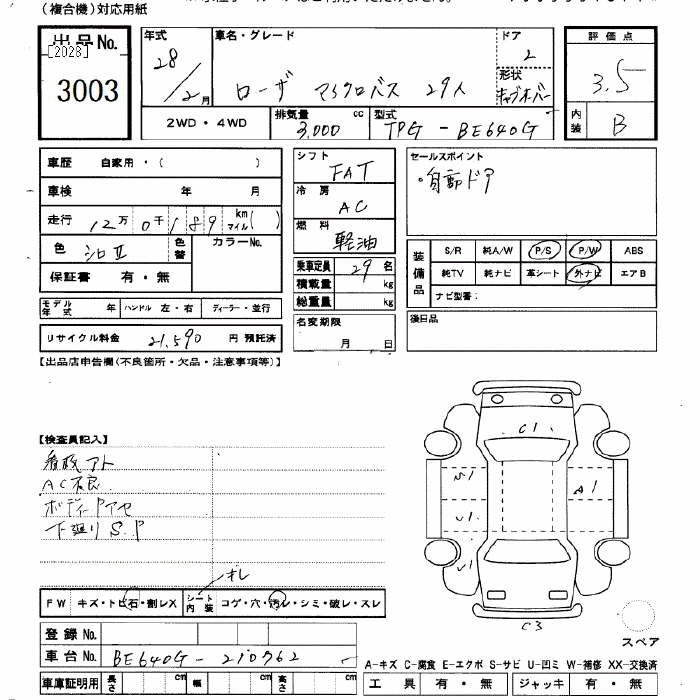 (複合機)対応用紙
出品No.
[2028]
3003
年式
28/2月
車名・グレード
ローザ マイクロバス 29人
ドア
2
形状
キャブオーバー
2WD・4WD
排気量 cc
3,000
型式
TPG-BE640G
評価点
3.5
内装
B
車歴 自家用・( )
車検 年 月
走行 12万0千189 km マイル( )
色 シロII
色替
カラーNo.
保証書 有・無
モデル年式 年
ハンドル 左・右
ディーラー・並行
リサイクル料金 21,590 円 預託済
シフト
FAT
冷房
AC
燃料
軽油
乗車定員 29名
積載量 kg
総重量 kg
名変期限
月 日
セールスポイント
・自動ドア
装備品
S/R 純A/W P/S P/W ABS
純TV 純ナビ 革シート 外ナビ エアB
ナビ型番:
後日品
【出品店申告欄(不良箇所・欠品・注意事項等)】
【検査員記入】
看板アト
AC不良
ボディヤケ
下廻りS.P
オレ
FW キズ・トビ石・割レX
シート内装 コゲ・穴・汚レ・シミ・破レ・スレ
登録No.
車台No. BE640G-210762
車庫証明用 長さ cm 幅 cm 高さ cm
C1
A1
U1
U1
C3
スペア
A-キズ C-腐食 E-エクボ S-サビ U-凹ミ W-補修 XX-交換済
工具 有・無
ジャッキ 有・無